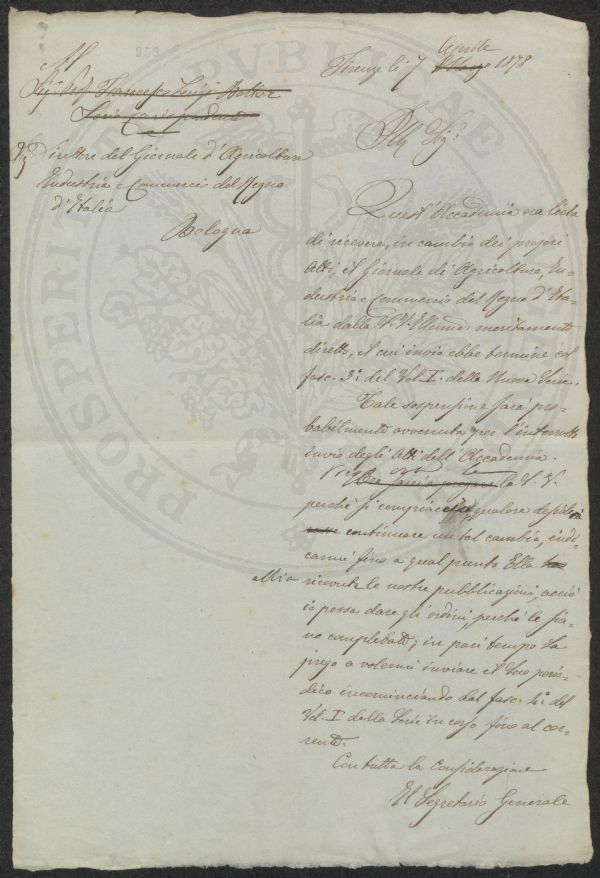 Al
Sig. Prof. Francesco Luigi
Socio Corrispondente
Direttore del Giornale d'Agricoltura
Industria e Commercio del Regno
d'Italia
Bologna
Firenze li 7 Marzo 1878
Aprile
Ill. Sig.
Quest'Accademia era lieta
di ricevere, in cambio dei propri
Atti, il Giornale di Agricoltura, In-
dustria e Commercio del Regno d'Ita-
lia dalla S. V. Illma. meritamente
diretto, il cui invio ebbe termine col
fasc. 3° del Vol. I. della Nuova Serie.
Tale sospensione sarà pro-
babilmente avvenuta per l'interrotto
invio degli Atti dell'Accademia.
ora la S. V.
perchè si compiaccia qualora desideri
continuare un tal cambio, indi-
carmi fino a qual punto Ella
Mia ricevute le nostre pubblicazioni, acciò
io possa dare gli ordini, perchè le sia-
no completate; in pari tempo La
prego a volermi inviare il Suo perio-
dico incominciando dal fasc. 4° del
Vol. I della Serie in corso fino al cor-
rente.
Con tutta la Considerazione
Il Segretario Generale
PROSPERITATI PVBLICAE